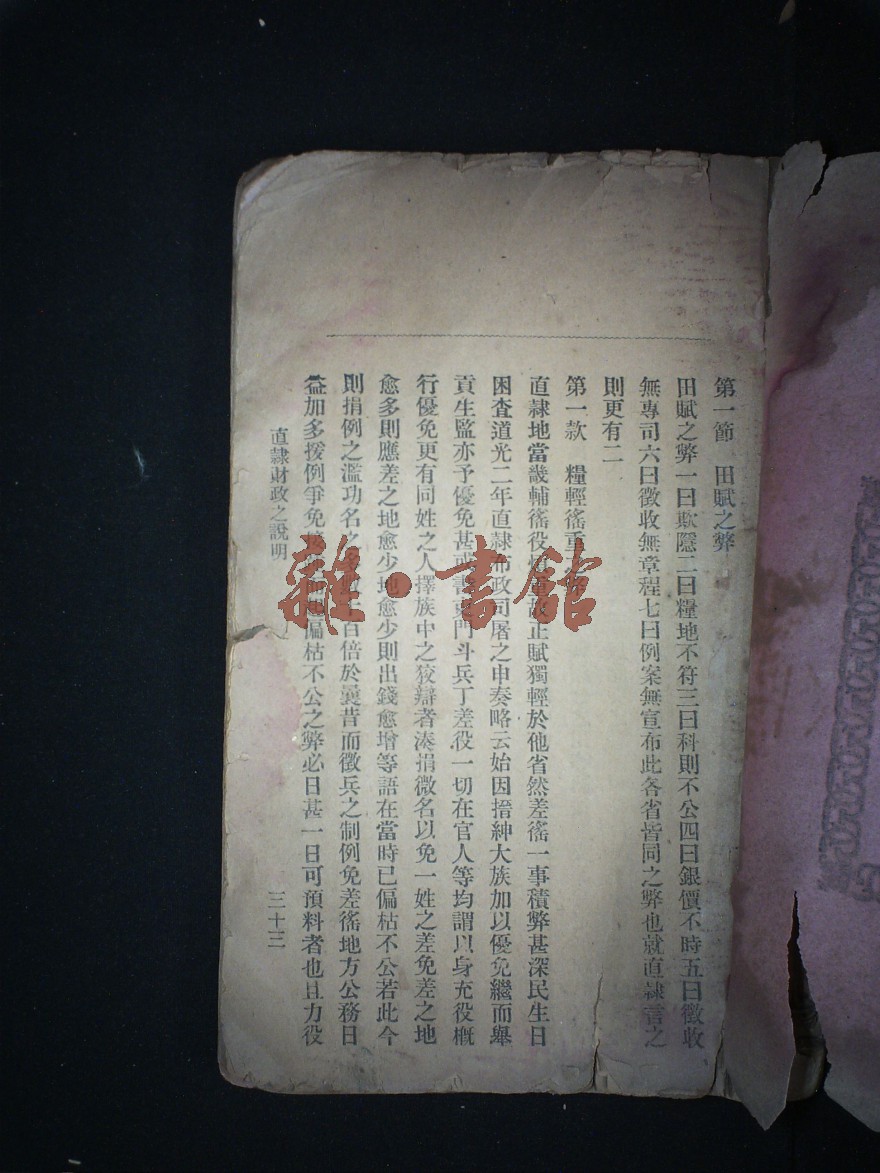 第一節　田賦之弊
田賦之弊一曰欺隱二曰糧地不符三曰科則不公四曰銀價不時五曰徵收
無專司六曰徵收無章程七曰例案無宣布此各省皆同之弊也就直隸言之
則更有二
第一款　糧輕徭重
直隸地當畿輔徭役 正賦獨輕於他省然差徭一事積弊甚深民生日
困查道光二年直隸布政司屠之申奏略云始因搢紳大族加以優免繼而舉
貢生監亦予優免甚或書吏門斗兵丁差役一切在官人等均謂以身充役概
行優免更有同姓之人擇族中之狡辯者湊捐微名以免一姓之差免差之地
愈多則應差之地愈少地愈少則出錢愈增等語在當時已偏枯不公若此今
則捐例之濫功名之 百倍於曩昔而徵兵之制例免差徭地方公務日
益加多援例爭免 偏枯不公之弊必日甚一日可預料者也且力役
直隸財政之說明
三十三
雜·書館